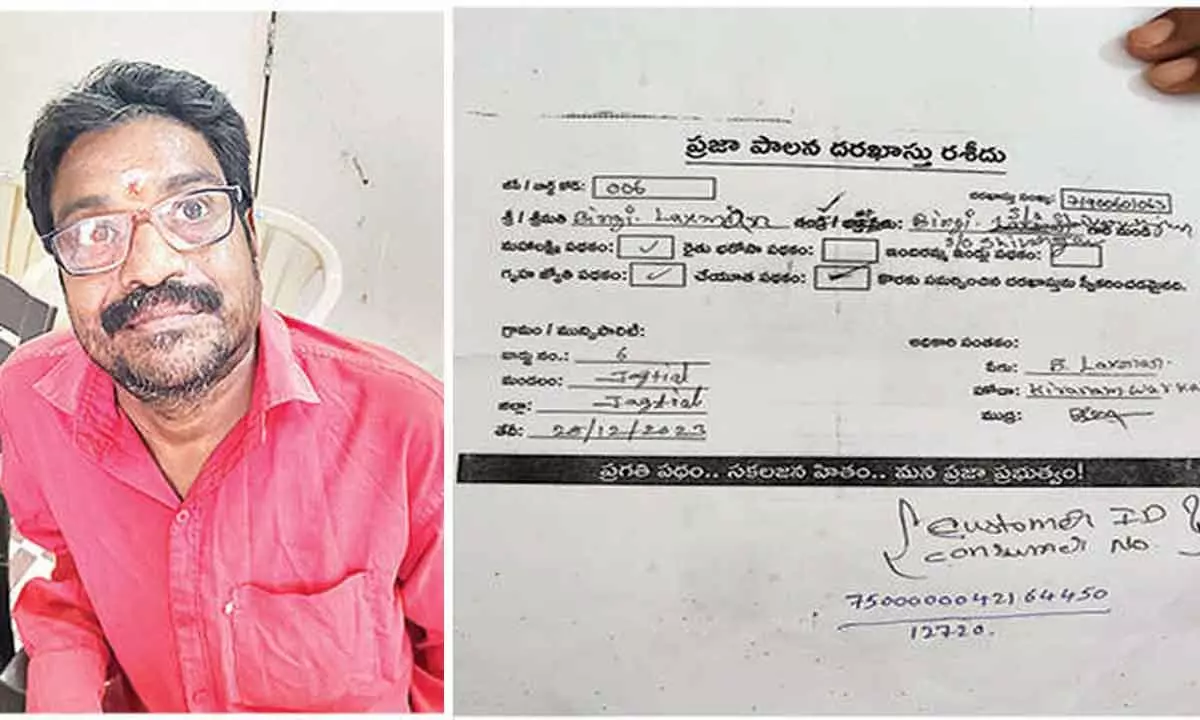 ప్రజా పాలన దరఖాస్తు రశీదు
జీపీ / వార్డ్ కోడ్: 006 దరఖాస్తు సంఖ్య:
శ్రీ / శ్రీమతి Bingi. Laxman తండ్రి / Bingi.
మహాలక్ష్మి పథకం: ✓ రైతు భరోసా పథకం: ఇందిరమ్మ ఇండ్లు పథకం:
గృహ జ్యోతి పథకం: ✓ చేయూత పథకం: ✓ కొరకు సమర్పించిన దరఖాస్తును స్వీకరించడమైనది.
గ్రామం / మున్సిపాలిటీ:
వార్డు నం.: 6
మండలం: Jagtial
జిల్లా: Jagtial
తేదీ: 28/12/2023
అధికారి సంతకం:
పేరు: B. Laxman
హోదా:
ముద్ర:
ప్రగతి పథం.. సకలజన హితం.. మన ప్రజా ప్రభుత్వం!
Customer ID
Consumer No
12720.